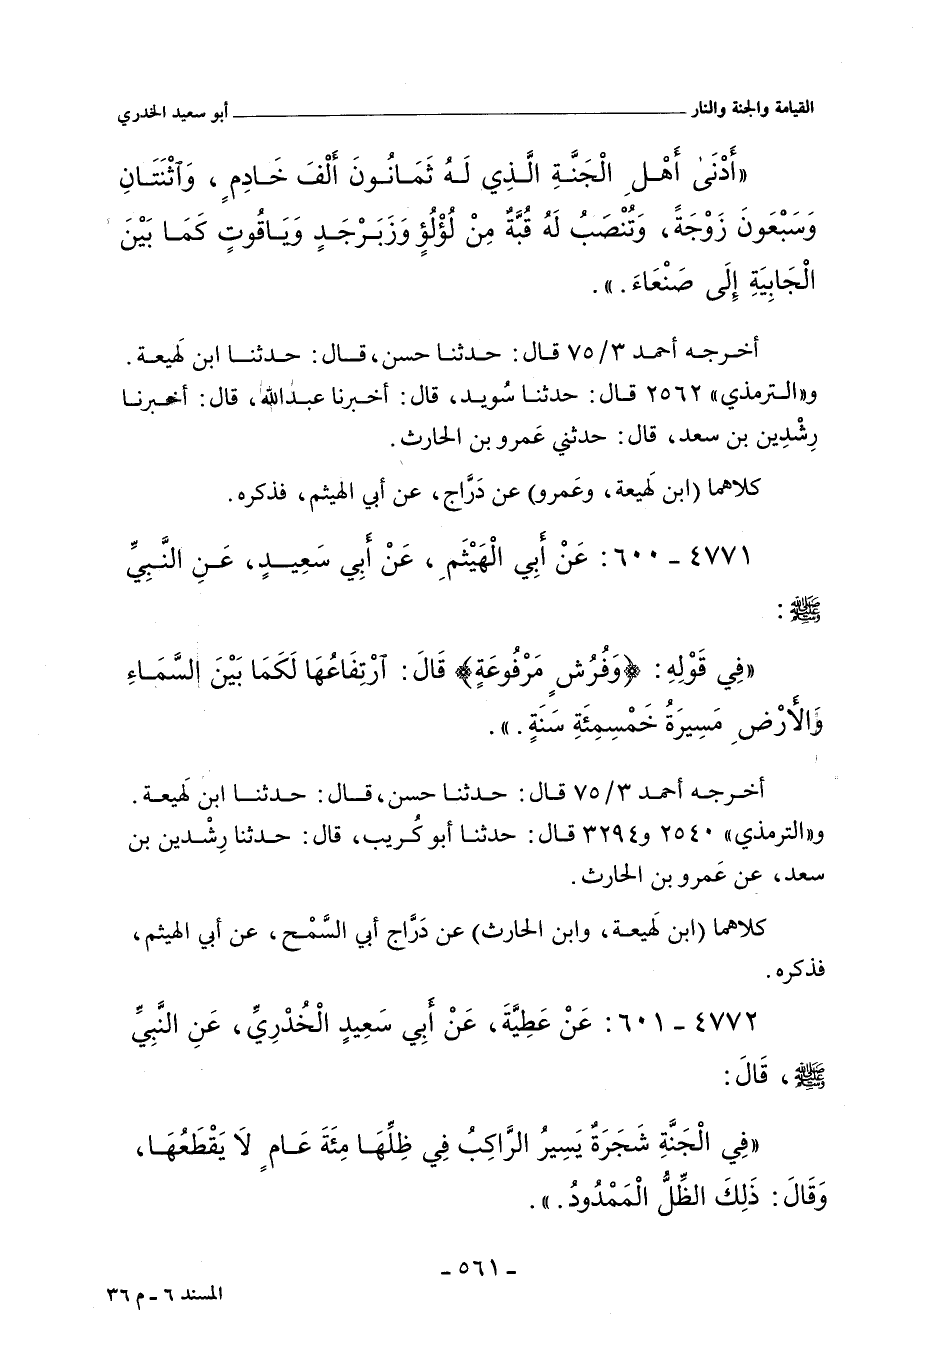 القيامة والجنة والنار ــــــــــــــــ أبو سعيد الخدري
«أَدْنَىٰ أَهْلِ الْجَنَّةِ الَّذِي لَهُ ثَمَانُونَ أَلْفَ خَادِمٍ ، وَٱثْنَتَانِ
وَسَبْعُونَ زَوْجَةً ، وَتُنْصَبُ لَهُ قُبَّةٌ مِنْ لُؤْلُؤٍ وَزَبَرْجَدٍ وَيَاقُوتٍ كَمَا بَيْنَ
الْجَابِيَةِ إِلَى صَنْعَاءَ . » .
أخرجه أحمد ٧٥/٣ قال : حدثنا حسن ، قال : حدثنا ابن لَهيعة .
و«الترمذي» ٢٥٦٢ قال : حدثنا سُويد ، قال : أخبرنا عبدالله ، قال : أخبرنا
رِشْدِين بن سعد ، قال : حدثني عَمرو بن الحارث .
كلاهما (ابن لَهيعة ، وعَمرو) عن دَرَّاج ، عن أبي الهيثم ، فذكره .
٤٧٧١ - ٦٠٠ : عَنْ أَبِي الْهَيْثَمِ ، عَنْ أَبِي سَعِيدٍ ، عَنِ النَّبِيِّ
ﷺ :
«فِي قَوْلِهِ : ﴿وَفُرُشٍ مَرْفُوعَةٍ﴾ قَالَ : ٱرْتِفَاعُهَا لَكَمَا بَيْنَ السَّمَاءِ
وَالْأَرْضِ مَسِيرَةُ خَمْسِمِئَةِ سَنَةٍ . » .
أخرجه أحمد ٧٥/٣ قال : حدثنا حسن ، قال : حدثنا ابن لَهيعة .
و«الترمذي» ٢٥٤٠ و٣٢٩٤ قال : حدثنا أبو كُريب ، قال : حدثنا رِشْدين بن
سعد ، عن عَمرو بن الحارث .
كلاهما (ابن لَهيعة ، وابن الحارث) عن دَرَّاج أبي السَّمْح ، عن أبي الهيثم ،
فذكره .
٤٧٧٢ - ٦٠١ : عَنْ عَطِيَّةَ ، عَنْ أَبِي سَعِيدٍ الْخُدْرِيِّ ، عَنِ النَّبِيِّ
ﷺ ، قَالَ :
«فِي الْجَنَّةِ شَجَرَةٌ يَسِيرُ الرَّاكِبُ فِي ظِلِّهَا مِئَةَ عَامٍ لَا يَقْطَعُهَا ،
وَقَالَ : ذَلِكَ الظِّلُّ الْمَمْدُودُ . » .
- ٥٦١ -
المسند ٦ - م ٣٦